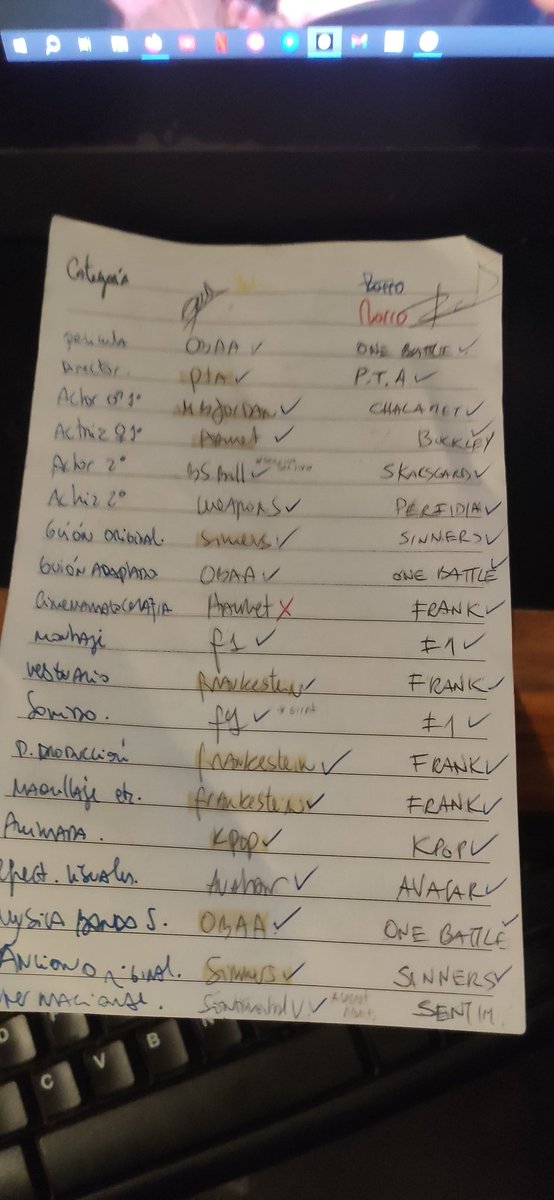 Categoría
Rotto
Rotto
película OBAA ✓ ONE BATTLE ✓
Director. PTA ✓ P.T.A ✓
Actor MBJORDAN ✓ CHALAMET ✓
Actriz Hamnet ✓ BUCKLEY
Actor 2º ✓ SKARSGARD ✓
Actriz 2º weapons ✓ PERFIDIA ✓
Guión original. Sinners ✓ SINNERS ✓
Guión ADAPTADO OBAA ✓ ONE BATTLE ✓
Hamnet X FRANK ✓
Montaje f1 ✓ F1 ✓
vestuario frankestein ✓ FRANK ✓
Sonido. f1 ✓ F1 ✓
D. producción frankestein ✓ FRANK ✓
Maquillaje etc. frankestein ✓ FRANK ✓
Animada. KPop ✓ KPOP ✓
fect. visuales. Avatar ✓ AVATAR ✓
OBAA ✓ ONE BATTLE ✓
original. Sinners ✓ SINNERS ✓
✓ SENTIM.
C V B